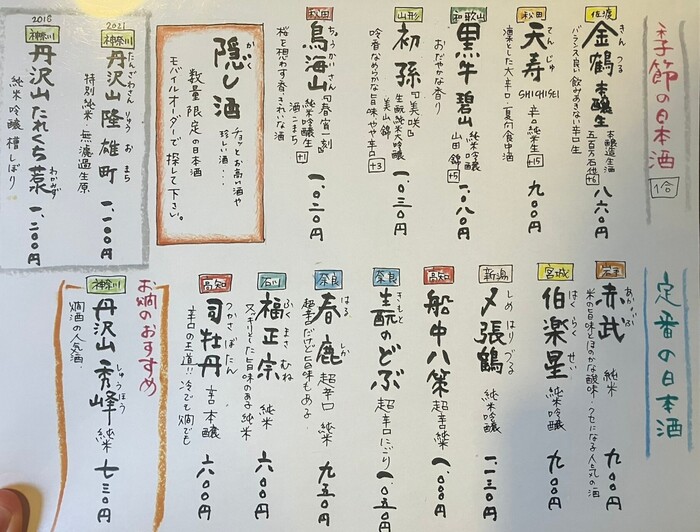 季節の日本酒
一合
佐渡
きんつる
金鶴 本醸生 本醸造生酒 五百万石他 +6 八六〇円
バランス良い飲みあきない辛口生
秋田
てんじゅ
天寿 SHICHISEI 辛口純米生 +15 九〇〇円
凛とした大辛口・夏向食中酒
和歌山
黒牛 碧山 純米吟醸 山田錦 +5 一、〇八〇円
おだやかな香り
山形
初孫 「美咲」 生酛純米大吟醸 美山錦 +3 一、〇三〇円
吟香なめらかな旨味やや辛口
秋田
ちょうかいさん
鳥海山 「春宵一刻」 純米吟醸生 酒こまち +1 一、〇二〇円
桜を想わす香・きれいな酒
かくし
隠し酒
チョッとお高い酒や
珍しい酒・・・
数量限定の日本酒
モバイルオーダーで探して下さい。
2021
神奈川
たんざわさんりょうおまち
丹沢山 隆 雄町 一、一〇〇円
特別純米 無濾過生原
2018
神奈川
丹沢山 たれくち 惹 一、二〇〇円
わかみず
純米吟醸 槽しぼり
定番の日本酒
岩手
あかぶ
赤武 純米 九〇〇円
米の旨味とほのかな酸味・クセになる人気の酒
宮城
はくらくせい
伯楽星 純米吟醸 九〇〇円
新潟
しめはりづる
〆張鶴 純米吟醸 一、一三〇円
高知
船中八策 超辛純米 一、〇〇〇円
奈良
きもと
生酛のどぶ 超辛口にごり 一、〇五〇円
奈良
はるしか
春鹿 超辛口 純米 九五〇円
超辛口だけど旨味もある
石川
ふくまさむね
福正宗 純米 六〇〇円
スッキリとした旨味のある純米
高知
つかさぼたん
司牡丹 辛口本醸 六〇〇円
辛口の王道!!冷でも燗でも
お燗のおすすめ
神奈川
しゅうほう
丹沢山 秀峰 純米 七三〇円
燗酒の人気酒